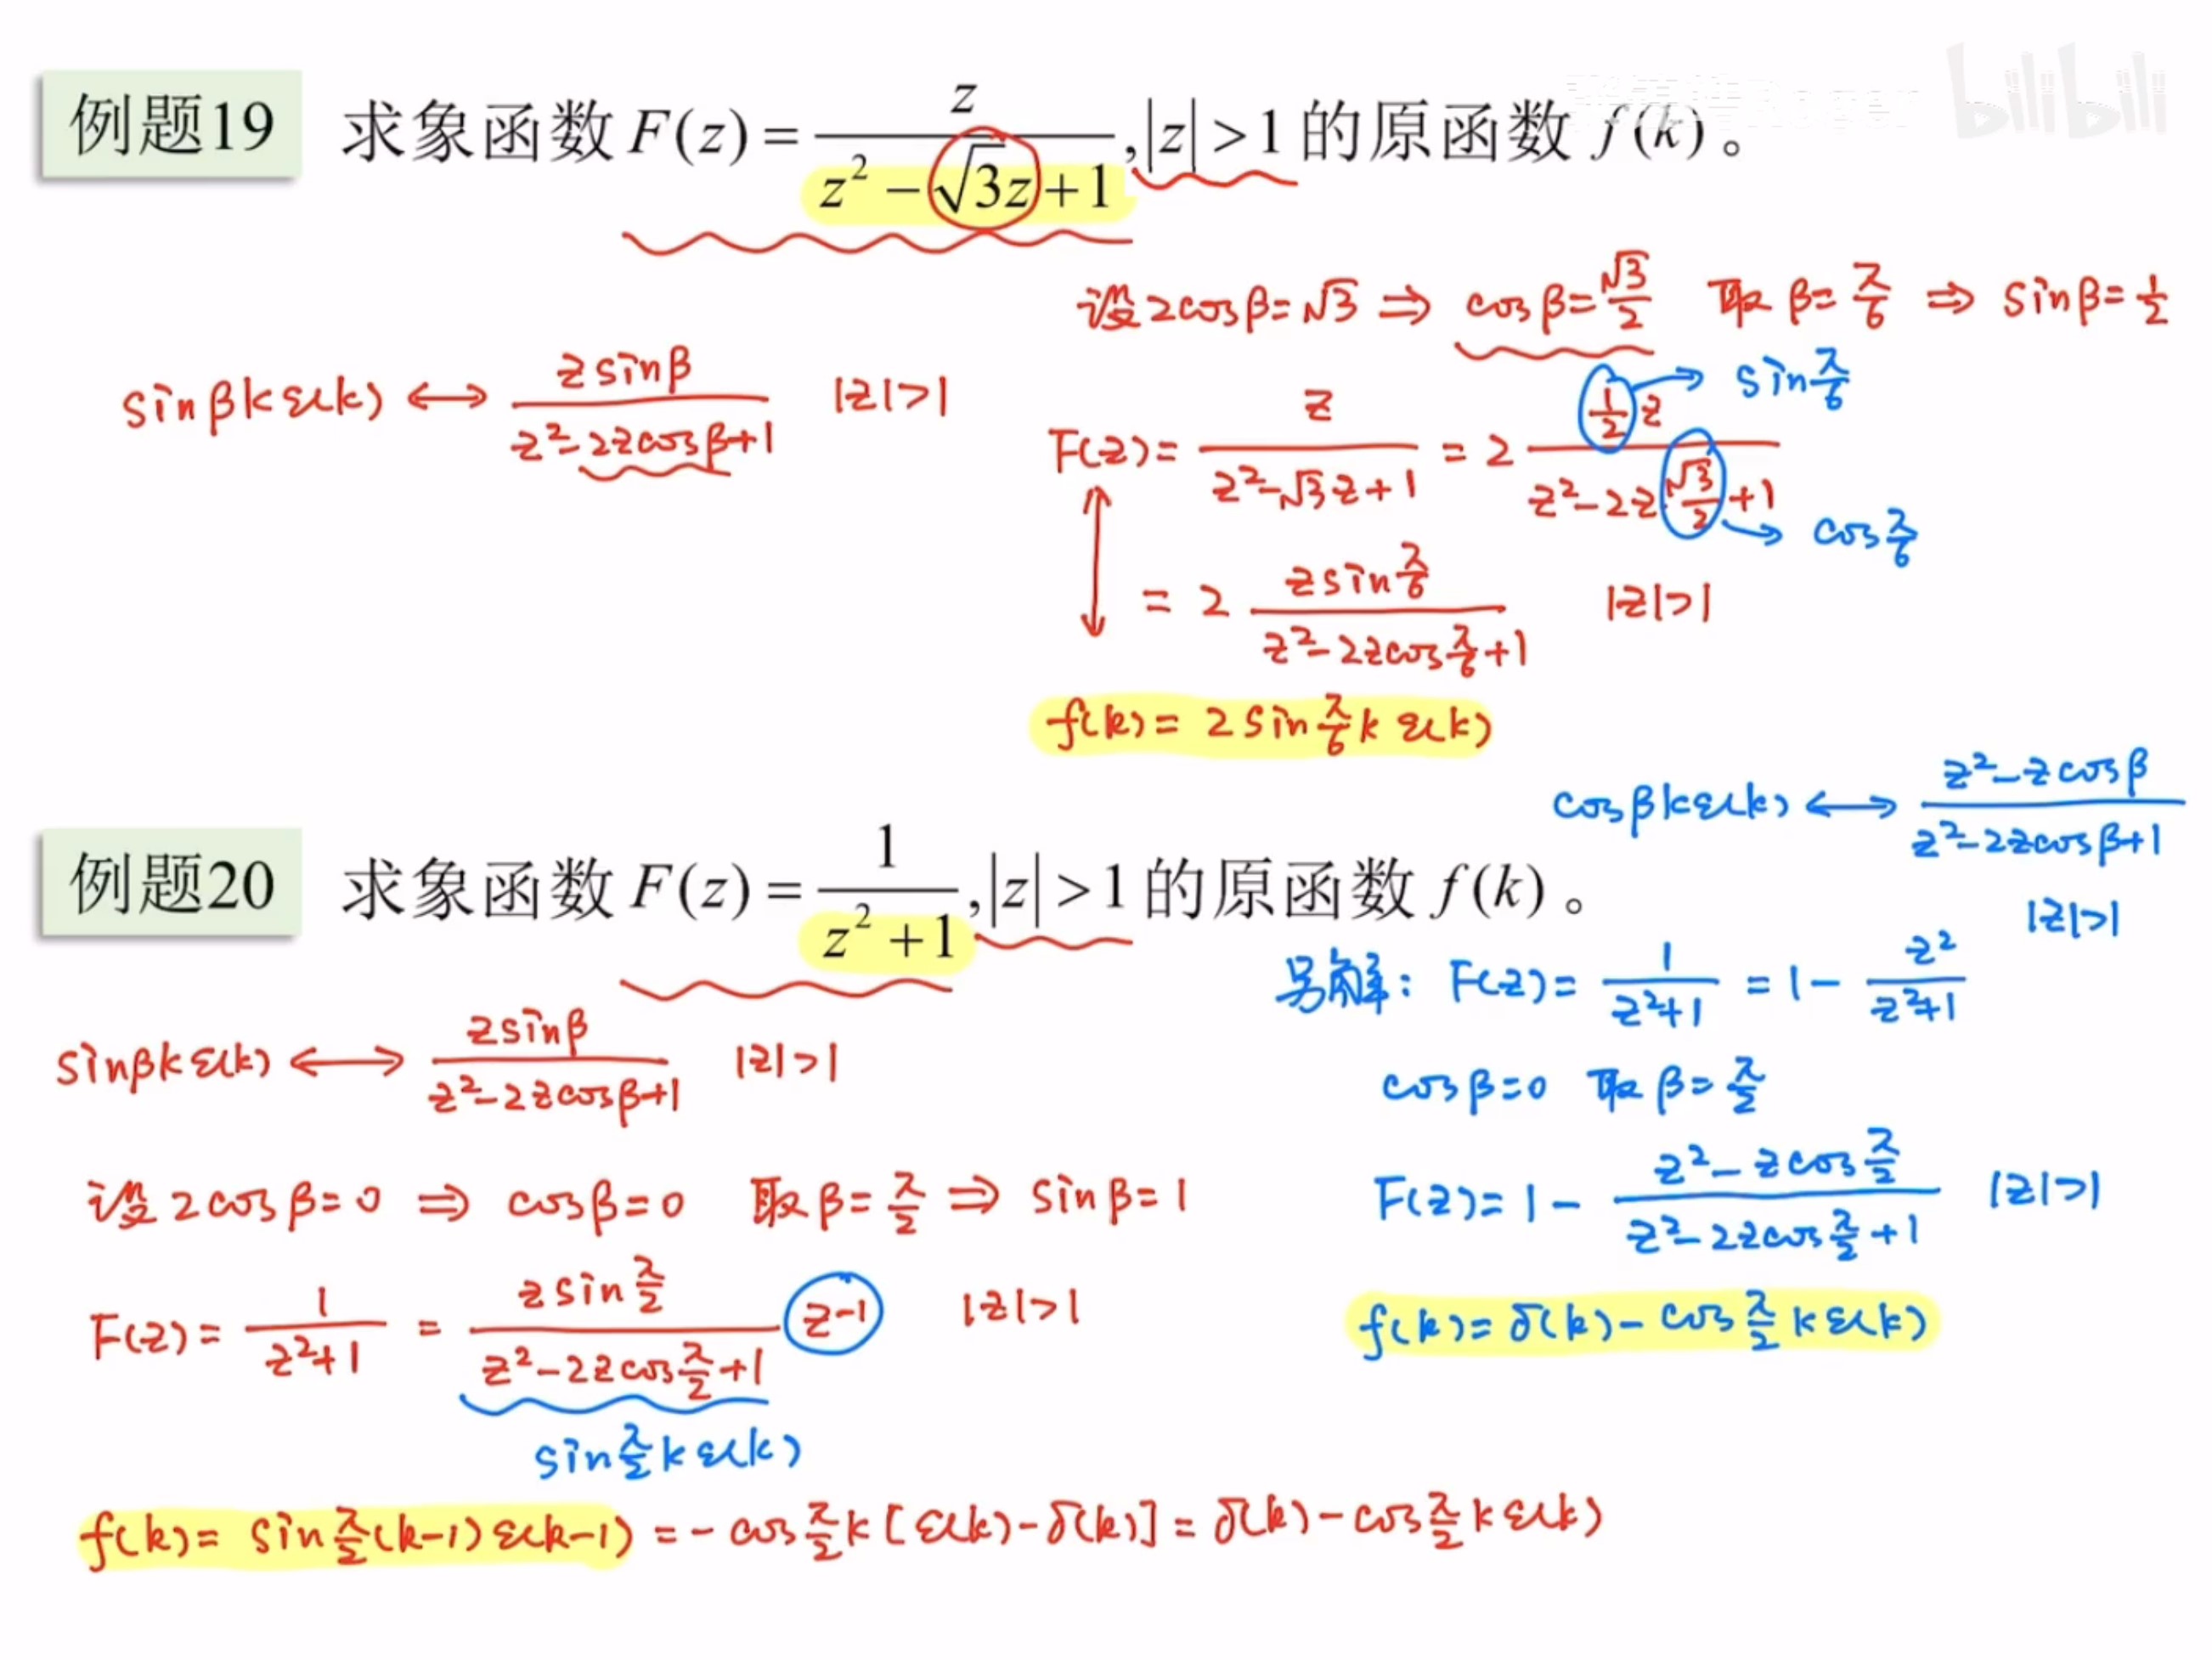 bilibili
例题19 求象函数 F(z) = z/(z² − √3z + 1), |z| > 1 的原函数 f(k)。
设 2cosβ = √3 ⇒ cosβ = √3/2 取 β = π/6 ⇒ sinβ = 1/2
sinβk ε(k) ↔ zsinβ/(z² − 2zcosβ + 1) |z|>1
F(z) = z/(z² − √3z + 1) = 2 (1/2 z)/(z² − 2z·√3/2 + 1)
→ sin π/6
→ cos π/6
= 2 zsin π/6/(z² − 2zcos π/6 + 1) |z|>1
f(k) = 2sin π/6 k ε(k)
cosβk ε(k) ↔ (z² − zcosβ)/(z² − 2zcosβ + 1)
|z|>1
例题20 求象函数 F(z) = 1/(z² + 1), |z| > 1 的原函数 f(k)。
sinβk ε(k) ↔ zsinβ/(z² − 2zcosβ + 1) |z|>1
设 2cosβ = 0 ⇒ cosβ = 0 取 β = π/2 ⇒ sinβ = 1
F(z) = 1/(z² + 1) = zsin π/2/(z² − 2zcos π/2 + 1) z⁻¹ |z|>1
sin π/2 k ε(k)
f(k) = sin π/2 (k−1) ε(k−1) = −cos π/2 k [ε(k) − δ(k)] = δ(k) − cos π/2 k ε(k)
另解: F(z) = 1/(z² + 1) = 1 − z²/(z² + 1)
cosβ = 0 取 β = π/2
F(z) = 1 − (z² − zcos π/2)/(z² − 2zcos π/2 + 1) |z|>1
f(k) = δ(k) − cos π/2 k ε(k)